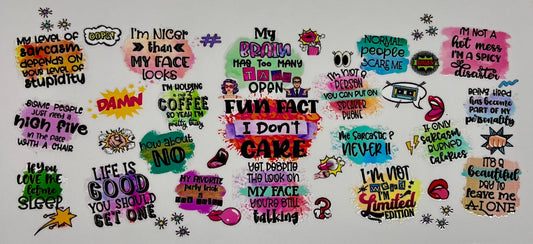 My level of
sarcasm
depends on
your level of
stupidity
OOPS!
I'm Nicer
than
MY FACE
looks
#
My
BRAIN
HAS TOO MANY
TABS
OPEN
NORMAL
people
SCARE ME
I'M NOT A
hot mess
I'M A SPICY
disaster
SOME PEOPLE
JUST NEED A
high five
IN THE FACE
WITH A CHAIR
DAMN
I'M HOLDING
a cup of
COFFEE
SO YEAH I'M
pretty busy
FUN FACT
I Don't
CARE
I'm not a
PERSON
YOU CAN PUT ON
SPEAKER
PHONE
BEING TIRED
has become
PART OF MY
personality
how about
NO
Me Sarcastic?
NEVER!!
IF ONLY
sarcasm
BURNED
calories
If you
LOVE ME
let me
SLEEP
LIFE IS
GOOD
YOU SHOULD
GET ONE
MY FAVORITE
party trick
YET DESPITE
the look on
MY FACE
YOU'RE STILL
talking
?
I'M NOT
WEIRD
I'M
Limited
EDITION
IT'S A
beautiful
DAY TO
leave me
ALONE